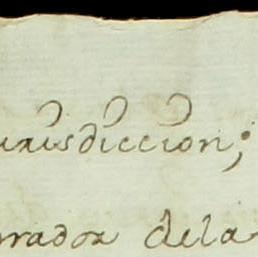 urisdiccion;
rrador dela